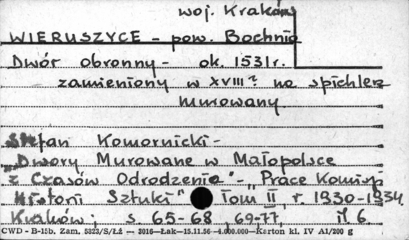 woj. Kraków
WIERUSZYCE - pow. Bochnia
Dwór obronny - ok. 1531r.
zamieniony w XVIII? na spichlerz
murowany
Stefan Komornicki -
"Dwory Murowane w Małopolsce
z Czasów Odrodzenia" - Prace Komisji
Historii Sztuki" Tom II, r. 1930-1934
Kraków; s 65-68, 69-77, il 6
CWD - B-15b. Zam. 5323/S/Łż — 3016—Łak—15.11.56 —4.000.000—Karton kl. IV A1/200 g